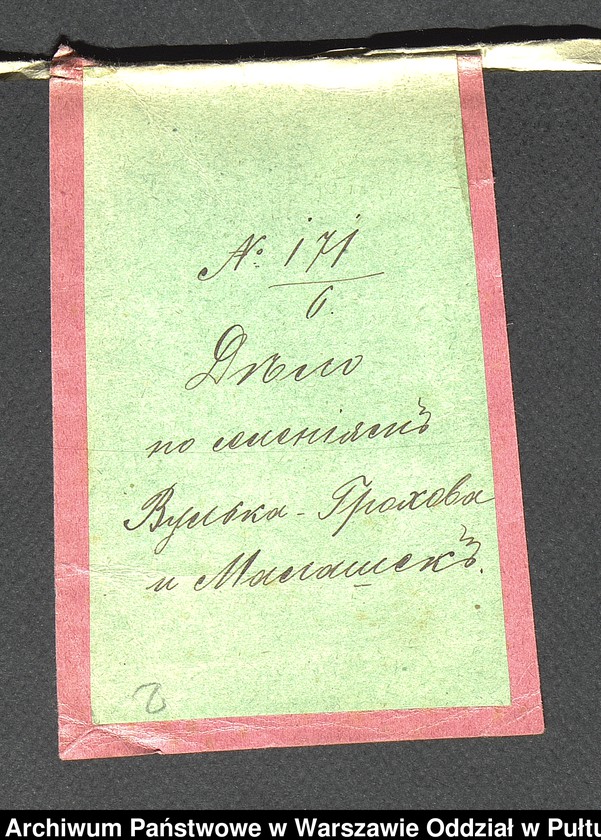 № 171
6.
Дѣло
по селеніямъ
Вулька-Грохова
и Малашекъ.
Archiwum Państwowe w Warszawie Oddział w Pułtu